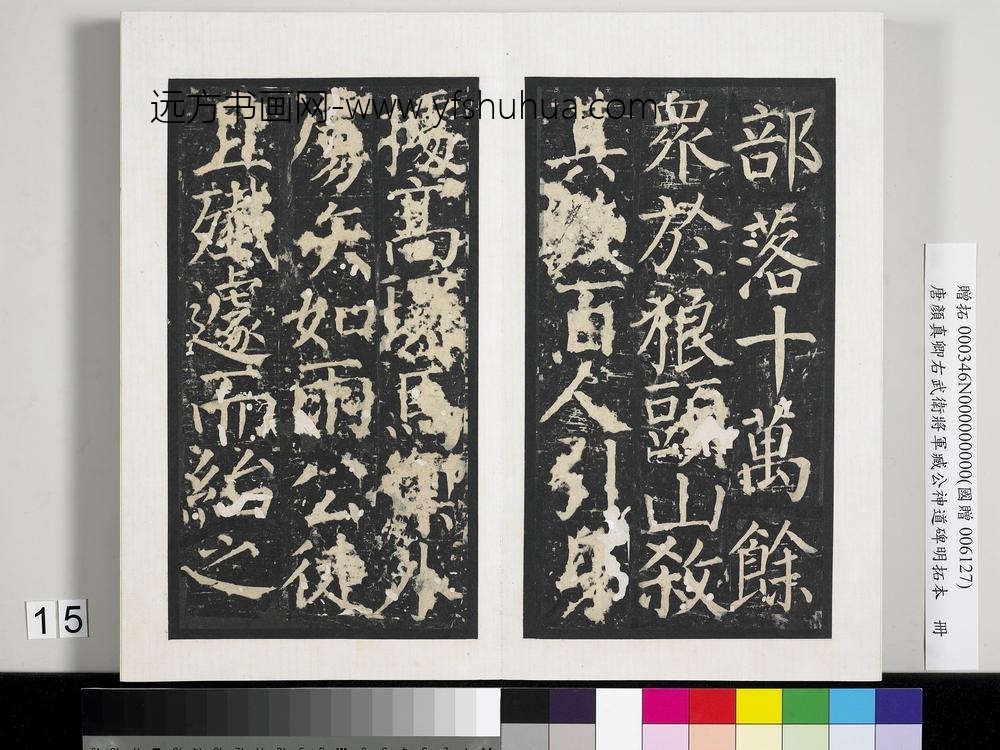 部落十萬餘
眾於狼頭山殺
其數百人引身
據高環馬禦外
虜矢如雨公徒
且殲遽而紿之
远方书画网-www.yfshuhua.com
贈拓 000346N000000000(國贈 006127)
唐顏真卿右武衛將軍臧公神道碑明拓本 冊
15